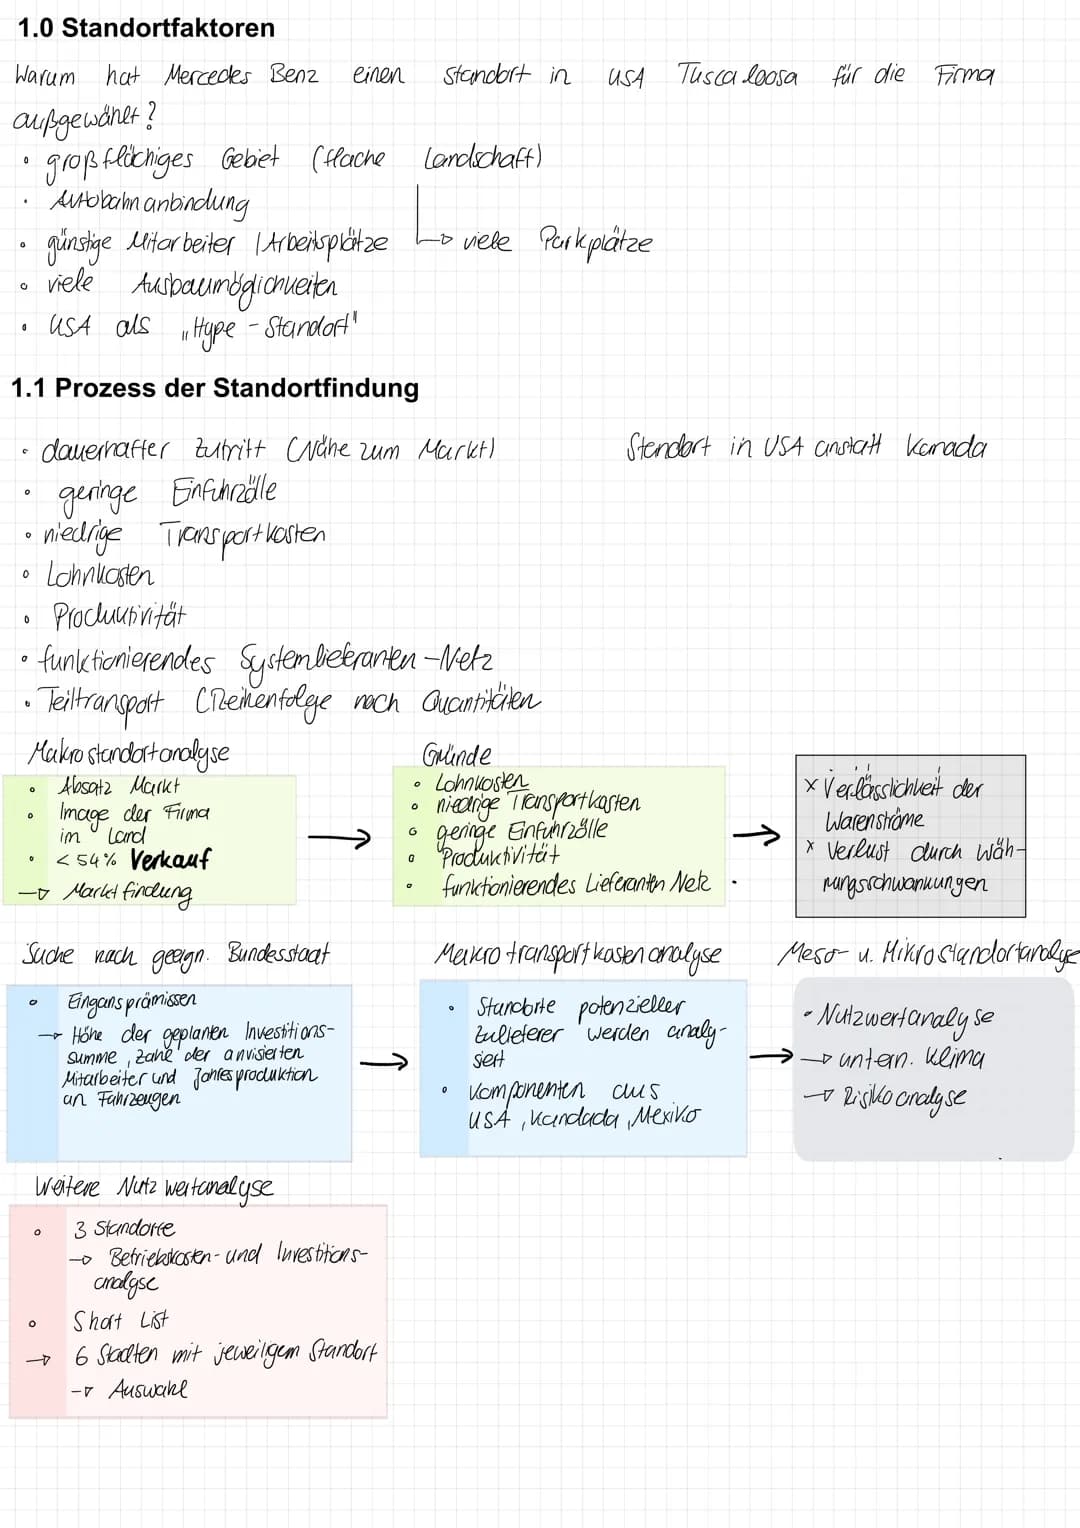 1.0 Standortfaktoren
Warum hat Mercedes Benz einen Standort in USA Tuscaloosa für die Firma
außgewählt?
• großflächiges Gebiet (flache Landschaft)
• Autobahnanbindung
• günstige Mitarbeiter / Arbeitsplätze → viele Parkplätze
• viele Ausbaumöglichkeiten
• USA als „Hype - Standort"
1.1 Prozess der Standortfindung
• dauerhafter Zutritt (Nähe zum Markt) Standort in USA anstatt Kanada
• geringe Einfuhrzölle
• niedrige Transportkosten
• Lohnkosten
• Produktivität
• funktionierendes Systemlieferanten-Netz
• Teiltransport (Reihenfolge nach Quantitäten
Makrostandortanalyse
• Absatz Markt
• Image der Firma
im Land
• < 54% Verkauf
→ Markt findung
Gründe
• Lohnkosten
• niedrige Transportkosten
• geringe Einfuhrzölle
• Produktivität
• funktionierendes Lieferanten Netz
x Verlässlichkeit der
Warenströme
x Verlust durch Wäh-
rungsschwankungen
Suche nach geeign. Bundesstaat
• Eingansprämissen
→ Höhe der geplanten Investitions-
summe, Zahl der anvisierten
Mitarbeiter und Jahresproduktion
an Fahrzeugen
Makrotransportkostenanalyse
• Standorte potenzieller
Zulieferer werden analy-
siert
• Komponenten aus
USA, Kandada, Mexiko
Meso- u. Mikrostandortanalyse
• Nutzwertanalyse
→ untern. Klima
→ Risikoanalyse
Weitere Nutzwertanalyse
• 3 Standorte
→ Betriebskosten- und Investitions-
analyse
• Short List
→ 6 Stadten mit jeweiligem Standort
→ Auswahl